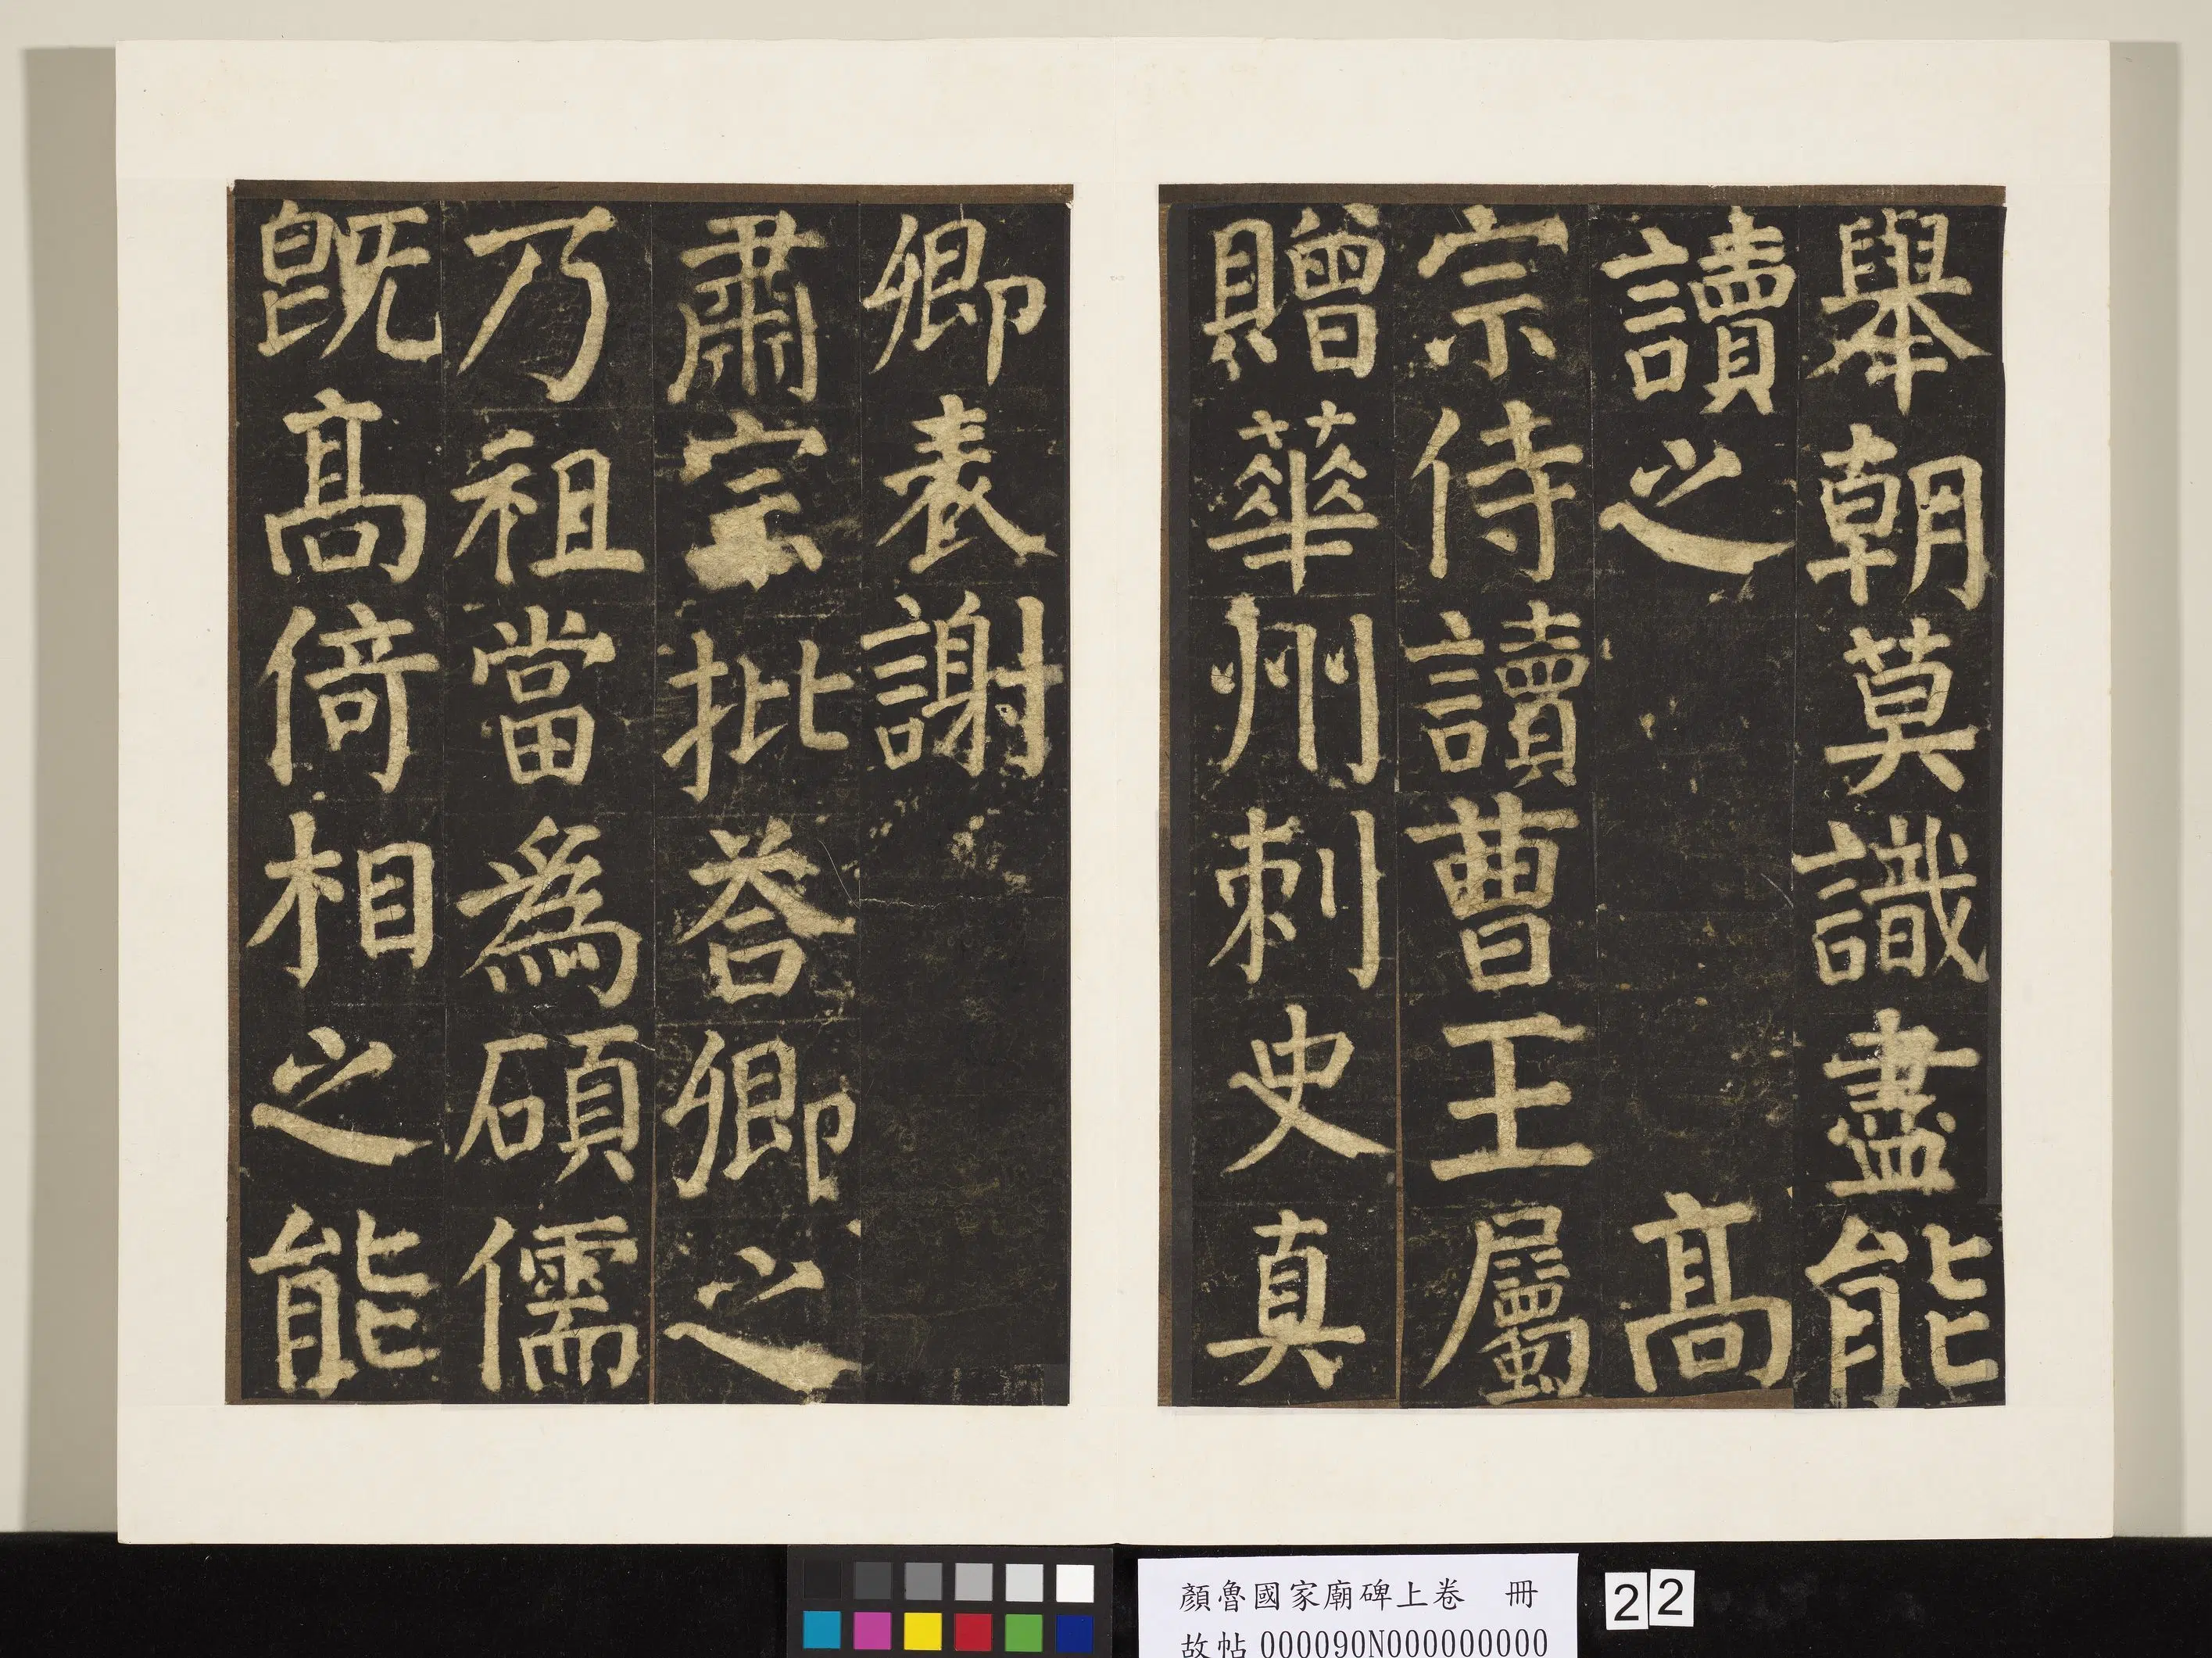 舉朝莫識盡能
讀之 高
宗侍讀曹王屬
贈華州刺史真
卿表謝
肅宗批荅卿之
乃祖當為碩儒
既高倚相之能
顏魯國家廟碑上卷 冊
故帖 000090N000000000
22